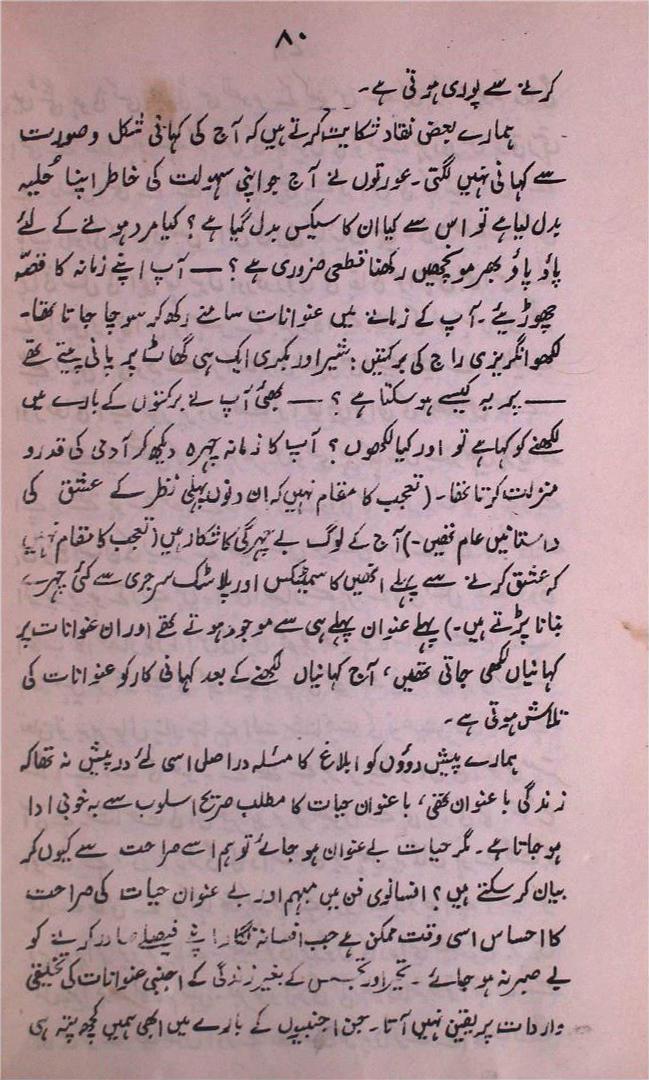 ۸۰
کرنے سے پوری ہوتی ہے۔
ہمارے بعض نقاد شکایت کرتے ہیں کہ آج کی کہانی شکل و صورت
سے کہانی نہیں لگتی۔ عورتوں نے آج جو اپنی سہولت کی خاطر اپنا حُلیہ
بدل لیا ہے تو اس سے کیا ان کا سیکس بدل گیا ہے؟ کیا مرد ہونے کے لئے
پاؤ پاؤ بھر مونچھیں رکھنا قطعی ضروری ہے؟ — آپ اپنے زمانہ کا قصّہ
چھوڑیئے۔ آپ کے زمانے میں عنوانات سامنے رکھ کر سوچا جاتا تھا۔
لکھو انگریزی راج کی برکتیں: شیر اور بکری ایک ہی گھاٹ پر پانی پیتے تھے
— پر یہ کیسے ہو سکتا ہے؟ — بھئی آپ نے برکتوں کے بارے میں
لکھنے کو کہا ہے تو اور کیا لکھوں؟ آپ کا زمانہ چہرہ دیکھ کر آدمی کی قدر و
منزلت کرتا تھا۔ (تعجب کا مقام نہیں کہ ان دنوں پہلی نظر کے عشق کی
داستانیں عام تھیں۔) آج کے لوگ بے چہرگی کا شکار ہیں (تعجب کا مقام نہیں
کہ عشق کرنے سے پہلے انھیں کاسمیٹکس اور پلاسٹک سرجری سے کئی چہرے
بنانا پڑتے ہیں۔) پہلے عنوان پہلے ہی سے موجود ہوتے تھے اور ان عنوانات پر
کہانیاں لکھی جاتی تھیں، آج کہانیاں لکھنے کے بعد کہانی کار کو عنوانات کی
تلاش ہوتی ہے۔
ہمارے پیش روؤں کو ابلاغ کا مسئلہ دراصل اسی لئے درپیش نہ تھا کہ
زندگی با عنوان تھی، با عنوان حیات کا مطلب صریح اسلوب سے بہ خوبی ادا
ہو جاتا ہے۔ مگر حیات بے عنوان ہو جائے تو ہم اسے صراحت سے کیوں کر
بیان کر سکتے ہیں؟ افسانوی فن میں مبہم اور بے عنوان حیات کی صراحت
کا احساس اسی وقت ممکن ہے جب افسانہ نگار اپنے فیصلے صادر کرنے کو
بے صبر نہ ہو جائے۔ تحیر اور تجسس کے بغیر زندگی کے اجنبی عنوانات کی تخلیقی
واردات پر یقین نہیں آتا۔ جن اجنبیوں کے بارے میں ابھی ہمیں کچھ پتہ ہی